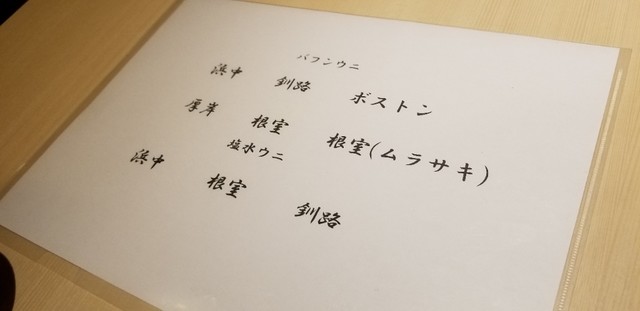 バフンウニ
浜中 釧路 ボストン
厚岸 根室 根室(ムラサキ)
塩水ウニ
浜中 根室 釧路